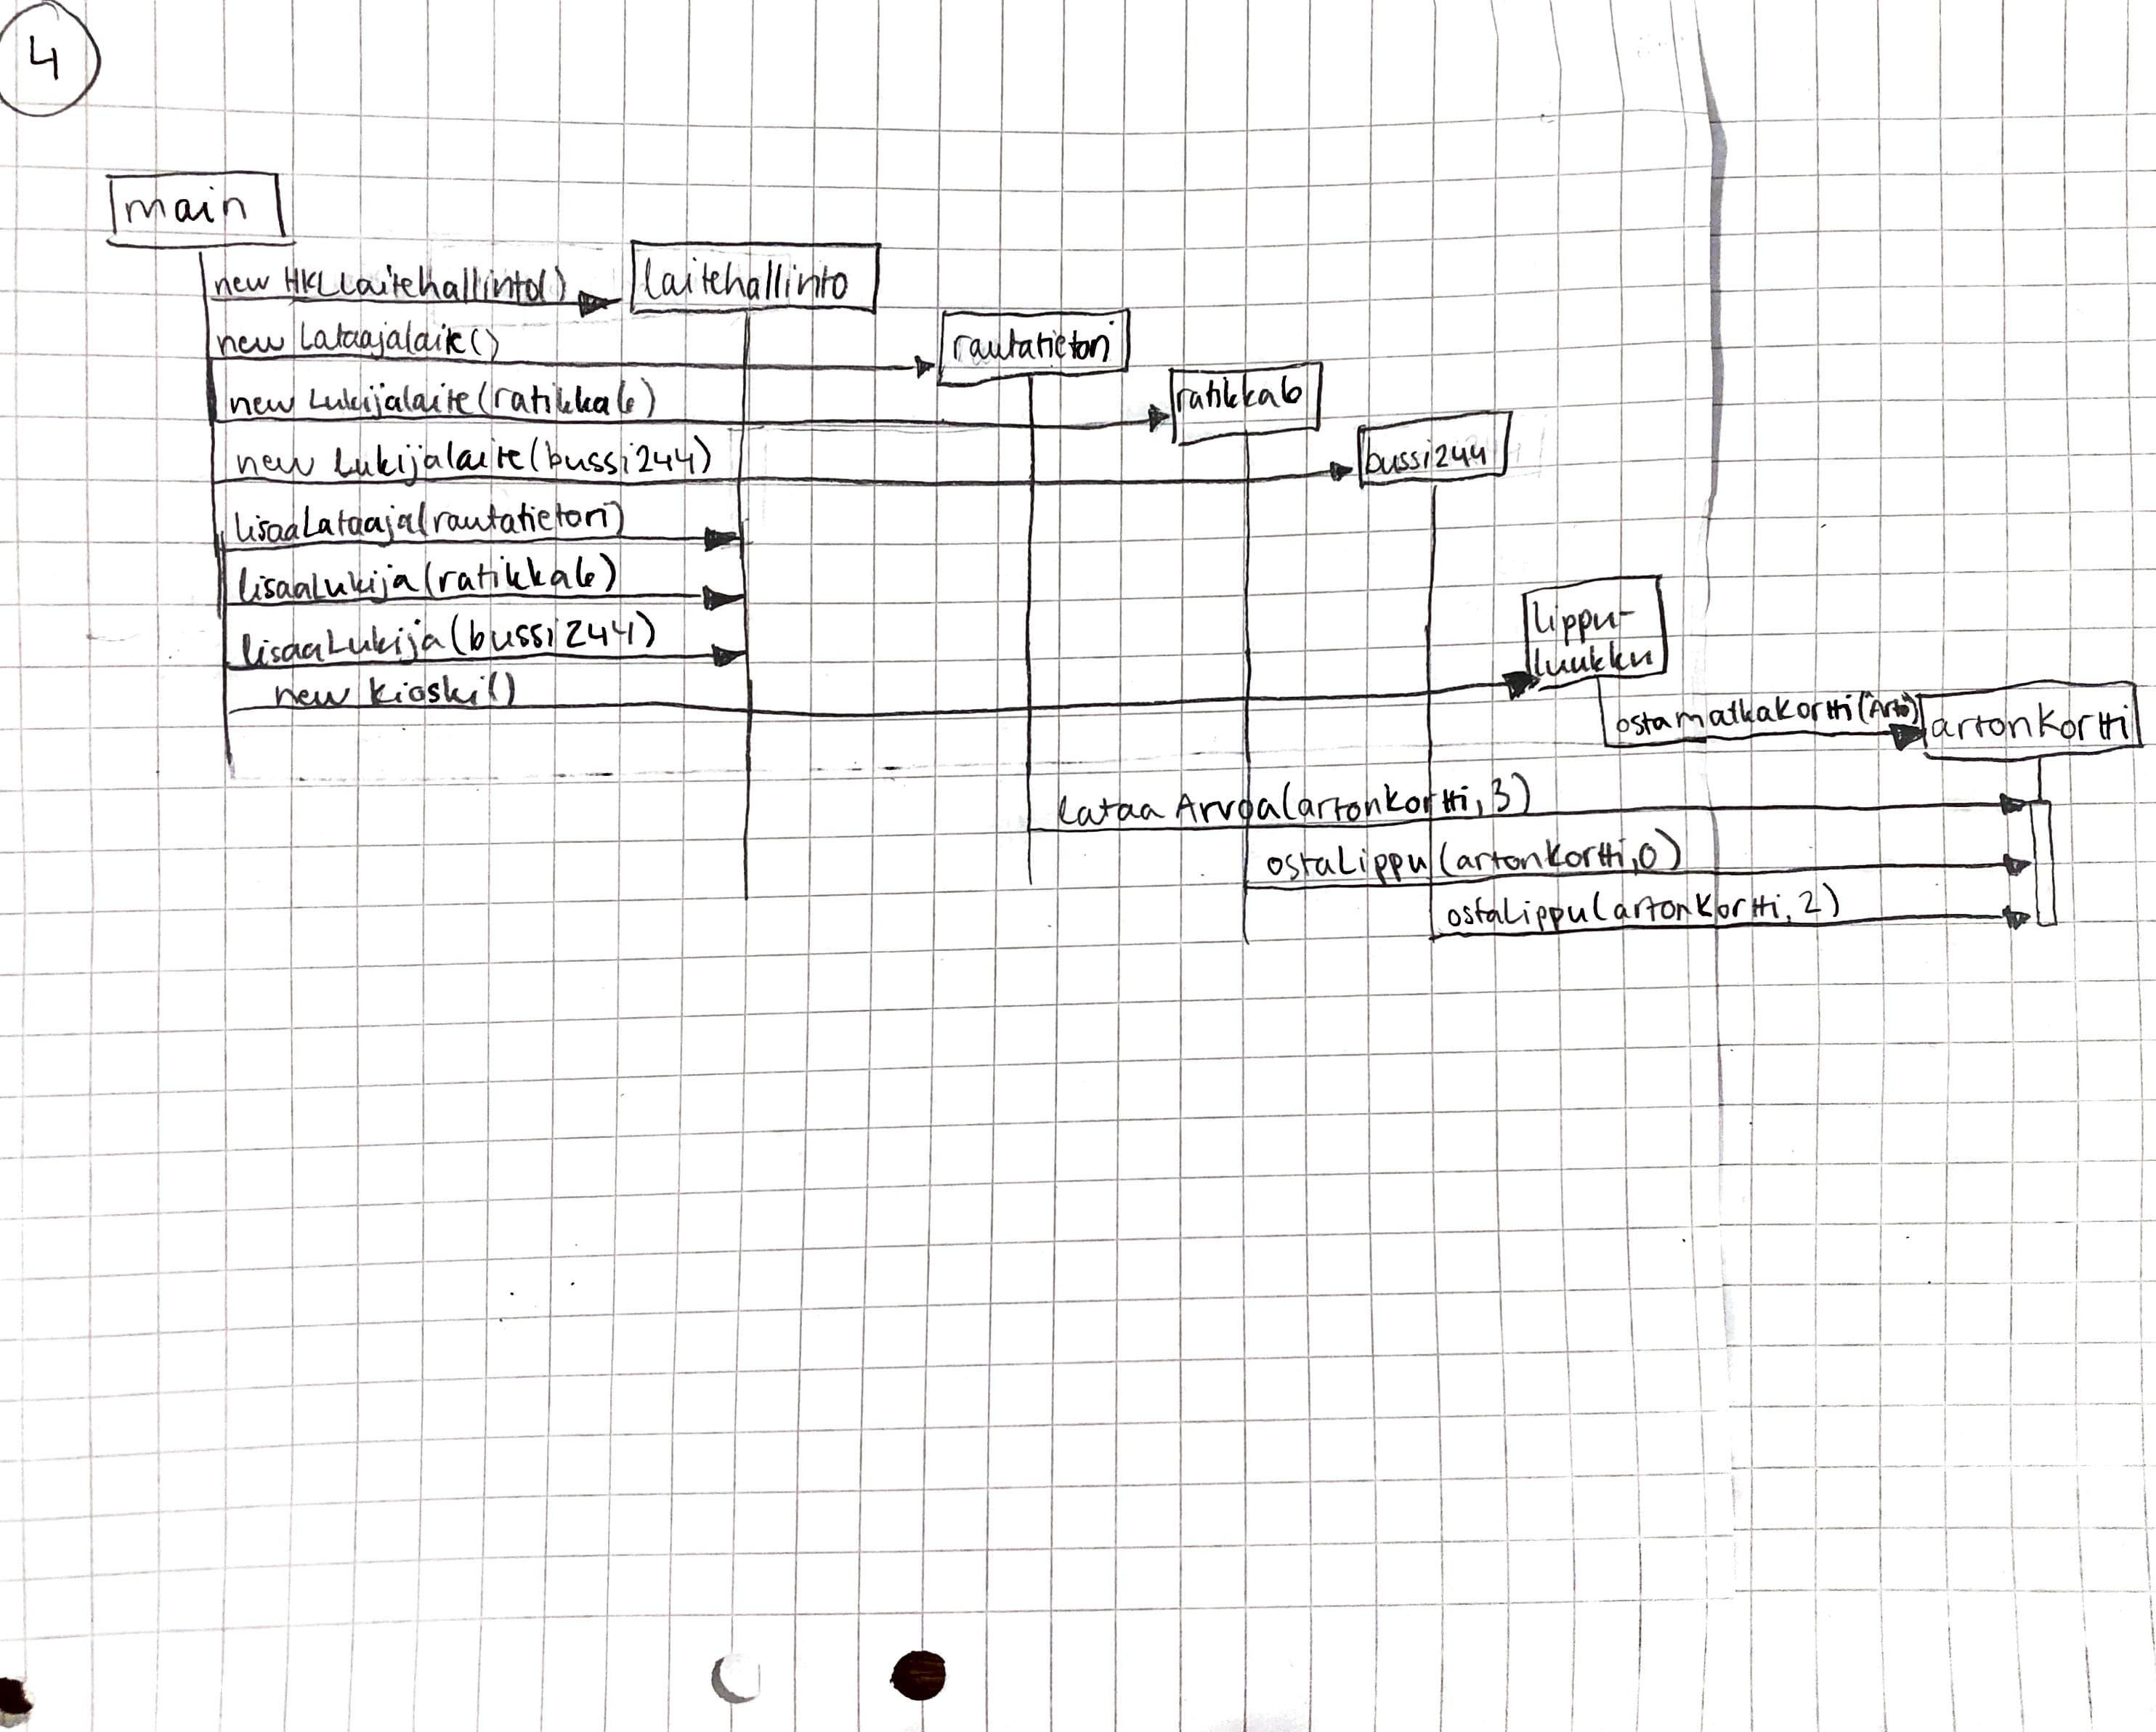 4
main
new HKLLaitehallinto()
laitehallinto
new Lataajalaite()
rautatietori
new Lukijalaite(ratikka6)
ratikka6
new Lukijalaite(bussi244)
bussi244
lisaaLataaja(rautatietori)
lisaaLukija(ratikka6)
lisaaLukija(bussi244)
new Kioski()
lippu-
luukku
ostamatkakortti(Arto)
artonKortti
lataaArvoa(artonKortti, 3)
ostaLippu(artonKortti, 0)
ostaLippu(artonKortti, 2)